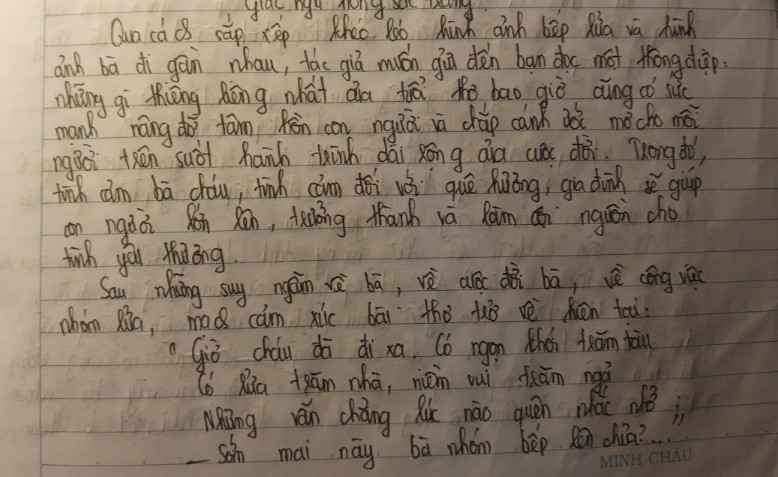 giấc ngủ trong sâu
Qua cách sắp xếp khéo léo hình ảnh bếp lửa và hình
ảnh bà đi gần nhau, tác giả muốn gửi đến bạn đọc một thông điệp:
những gì thiêng liêng nhất của tuổi thơ bao giờ cũng có sức
mạnh nâng đỡ tâm hồn con người và chắp cánh ước mơ cho mỗi
người trên suốt hành trình dài rộng của cuộc đời. Trong đó,
tình cảm bà cháu, tình cảm đối với quê hương, gia đình sẽ giúp
con người lớn lên, trưởng thành và làm cội nguồn cho
tình yêu thương.
Sau những suy ngẫm về bà, về cuộc đời bà, về công việc
nhóm lửa, mạch cảm xúc bài thơ trở về hiện tại:
" Giờ cháu đã đi xa. Có ngọn khói trăm tàu
Có lửa trăm nhà, niềm vui trăm ngả
Nhưng vẫn chẳng lúc nào quên nhắc nhở :
_ Sớm mai này bà nhóm bếp lên chưa?...
MINH CHÂU